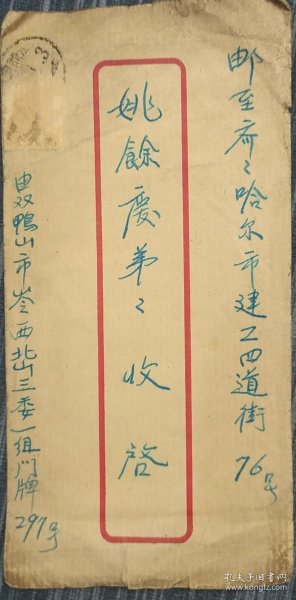 邮至齐〻哈尔市建工四道街 76号
姚餘慶弟〻 收 啓
由双鴨山市岺西北山三委一组门牌 297号
孔夫子旧书网
www.kongfz.com